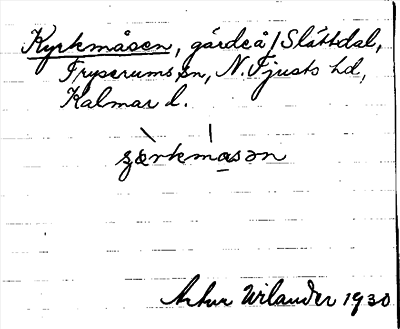 Kyrkmåsen, gärdeå/Slättdal,
Tryserums sn, N. Tjusts hd,
Kalmar l.
çærkmasən
Artur Wilander 1930